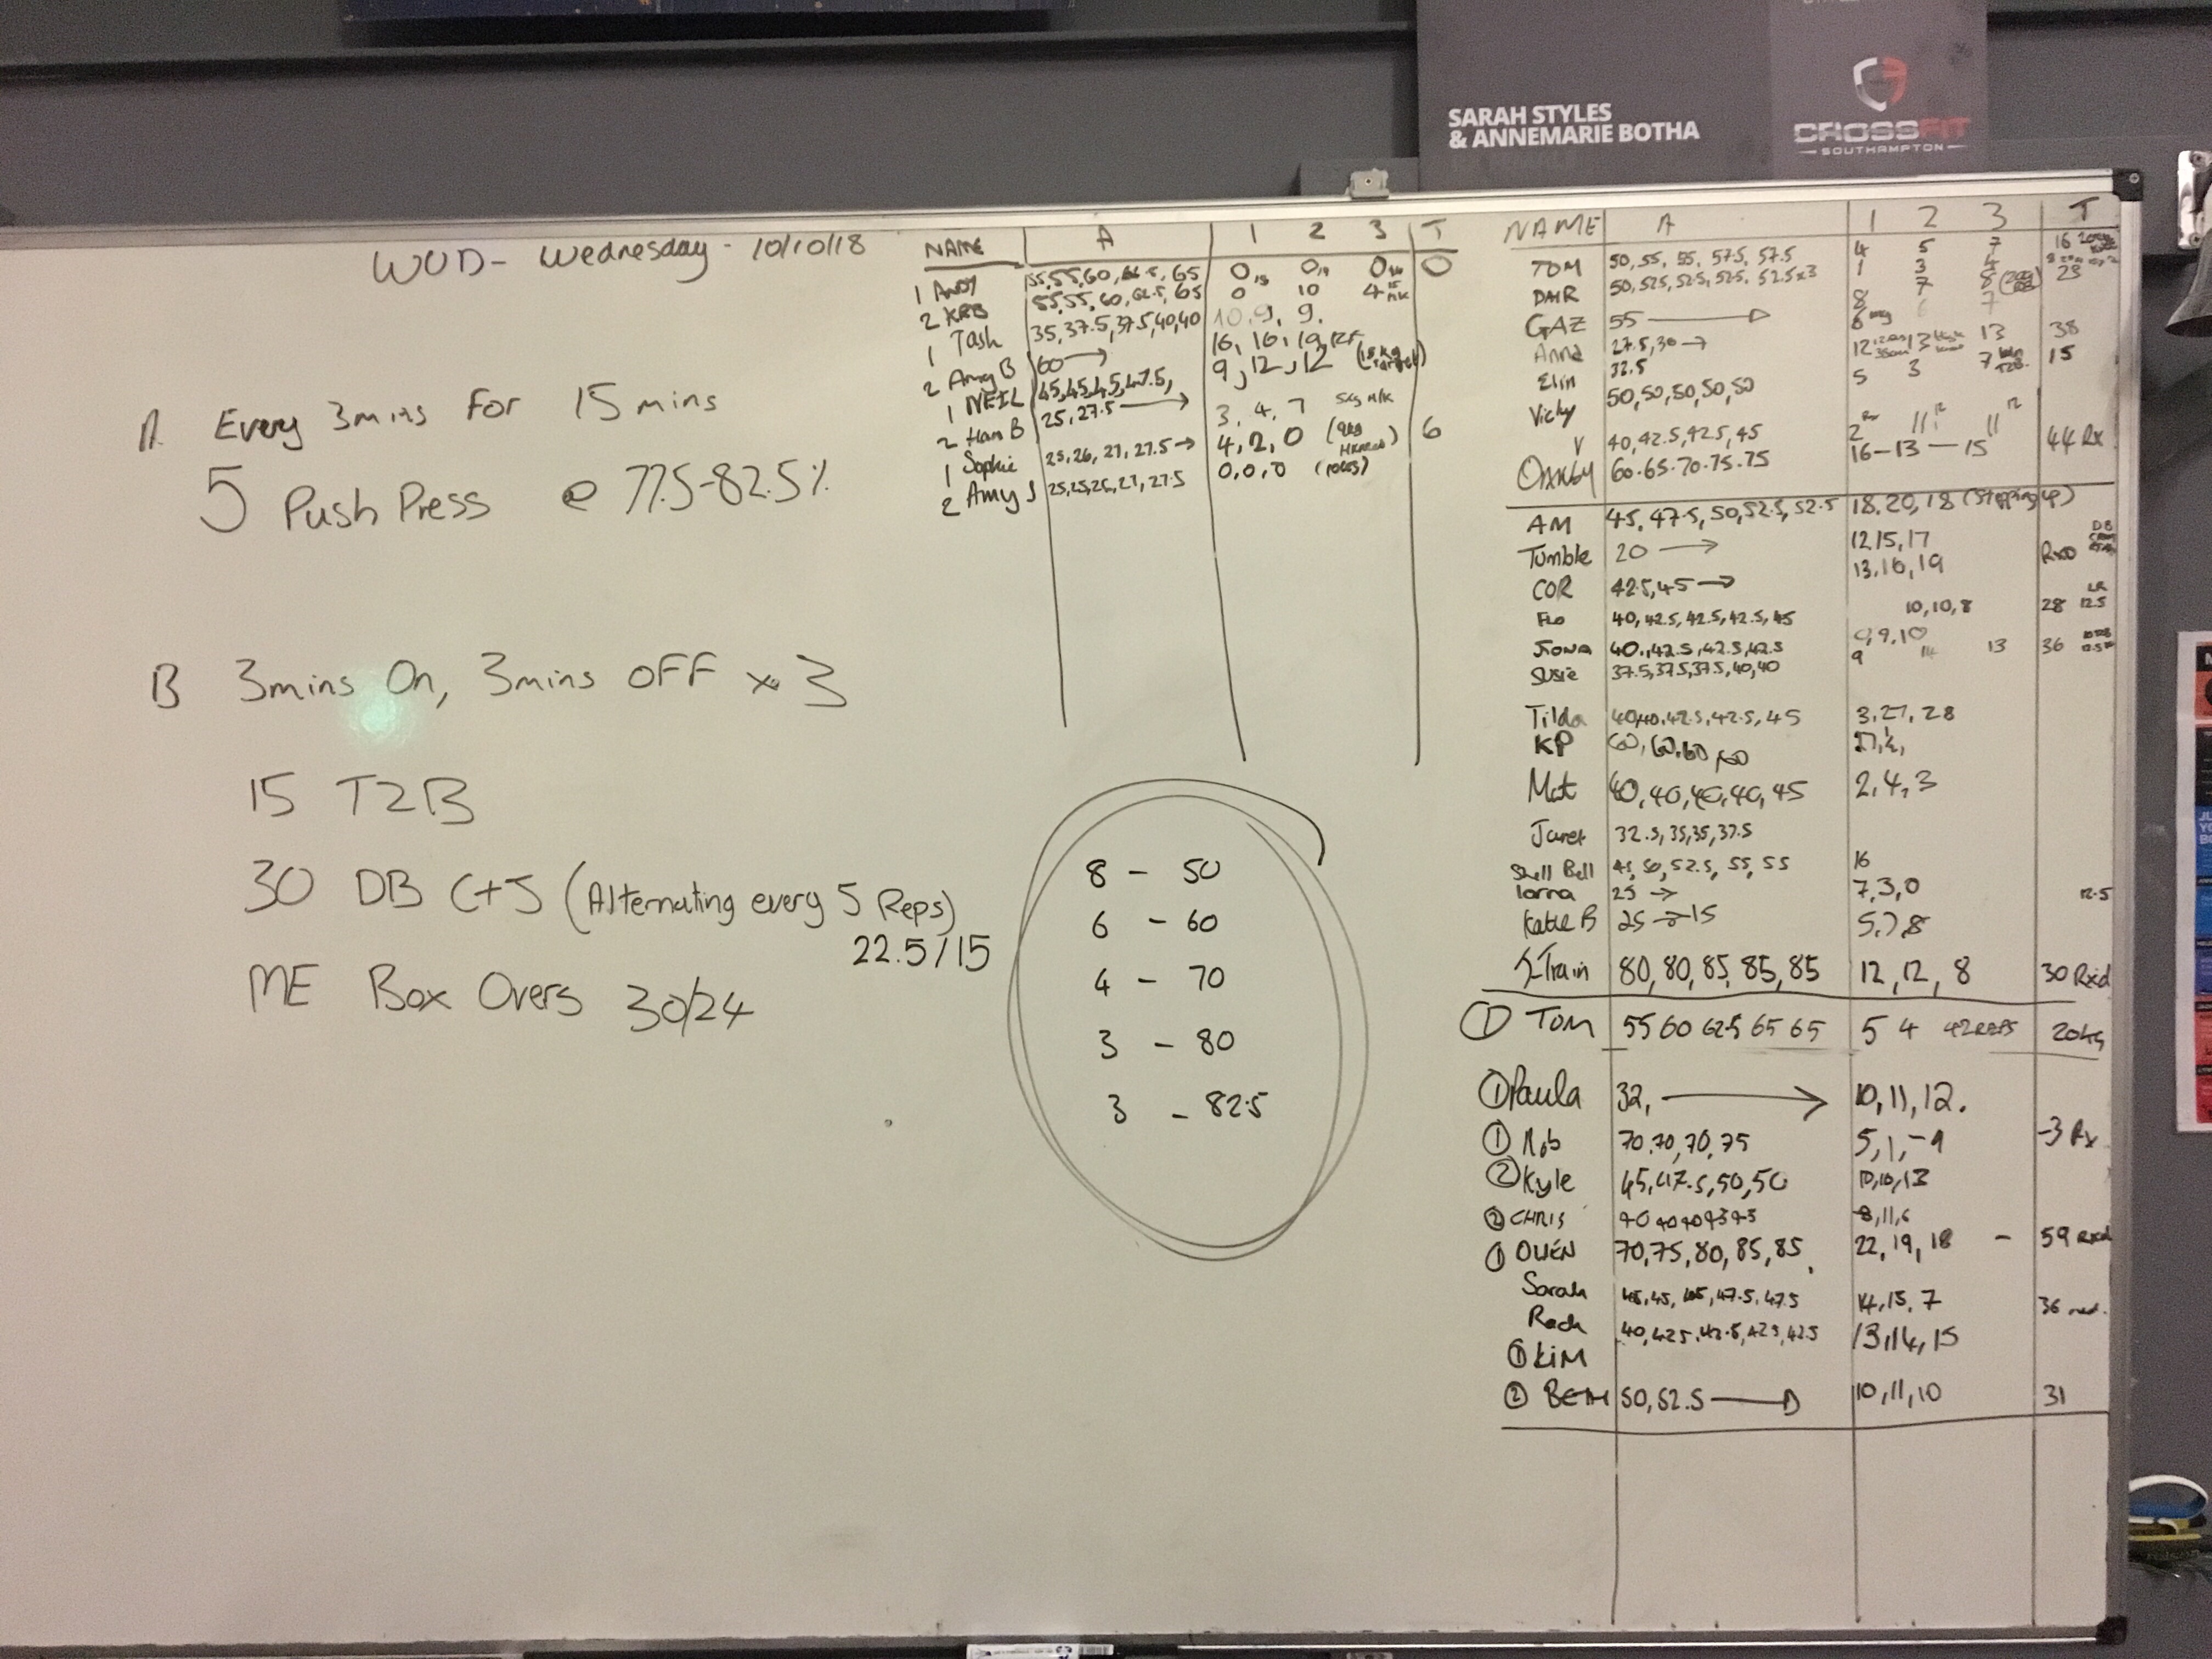 SARAH STYLES
& ANNEMARIE BOTHA
CROSSFIT
SOUTHAMPTON
WOD - Wednesday - 10/10/18
A Every 3mins For 15 mins
5 Push Press @ 77.5-82.5%
B 3mins On, 3mins OFF x 3
15 T2B
30 DB C+J (Alternating every 5 Reps)
22.5/15
ME Box Overs 30/24
NAME A 1 2 3 T
1 ANDY 55,55,60, 65 0 0 0 0
2 KRB 55,55,60,62.5,65 0 10 4
1 Tash 35,37.5,37.5,40,40 10, 9, 9.
2 Amy B 60 → 16, 16, 19
1 NEIL 45,45,45,47.5, 9, 12, 12
2 Ham B 25, 27.5 → 3, 4, 7
1 Sophie 25,26,27,27.5 → 4, 2, 0 6
2 Amy J 25,25,26,27,27.5 0,0,0
8 - 50
6 - 60
4 - 70
3 - 80
3 - 82.5
NAME A 1 2 3 T
TOM 50, 55, 55, 57.5, 57.5 4 5 7 16
50, 52.5, 52.5, 52.5, 52.5x3 1 3 4
GAZ 55 → 8 7 8 23
Anna 27.5,30 →
Elin 32.5 12 13 13 38
Vicky 50,50,50,50,50 5 3 7 15
V 40,42.5,42.5,45 2 11 11
60.65.70.75.75 16-13-15 44 Rx
AM 45, 47.5, 50, 52.5, 52.5 18, 20, 18 (Stepping up)
Tumble 20 → 12,15,17
COR 42.5,45 → 13,16,19
Flo 40, 42.5, 42.5, 42.5, 45 10, 10, 8 28 12.5
Fiona 40, 42.5, 42.5, 42.5 9,9,10
Susie 37.5,37.5,37.5,40,40 9 14 13 36
Tilda 40,40,42.5,42.5,45 3, 27, 28
KP 60, 60, 60
Mat 40, 40, 40, 40, 45 2, 4, 3
Janet 32.5, 35, 35, 37.5
Shell Bell 45, 50, 52.5, 55, 55 16
Lorna 25 → 7,3,0 12.5
Katie B 25 → 15
J-Train 80, 80, 85, 85, 85 12, 12, 8 30 Rxd
① TOM 55 60 62.5 65 65 5 4 42 REPS 20kg
① Paula 32, → 10, 11, 12.
① Rob 70, 70, 70, 75 5, 1, -9 -3 Rx
② Kyle 45, 47.5, 50, 50 10,10,13
② CHRIS 8,11,6
① OWEN 70, 75, 80, 85, 85 22, 19, 18 - 59 Rxd
Sarah 45,45, 45, 47.5, 47.5 14, 15, 7 36
Rach 40, 42.5, 42.5, 42.5, 42.5 13,14,15
① KIM
② BETH 50, 52.5 → 10, 11, 10 31